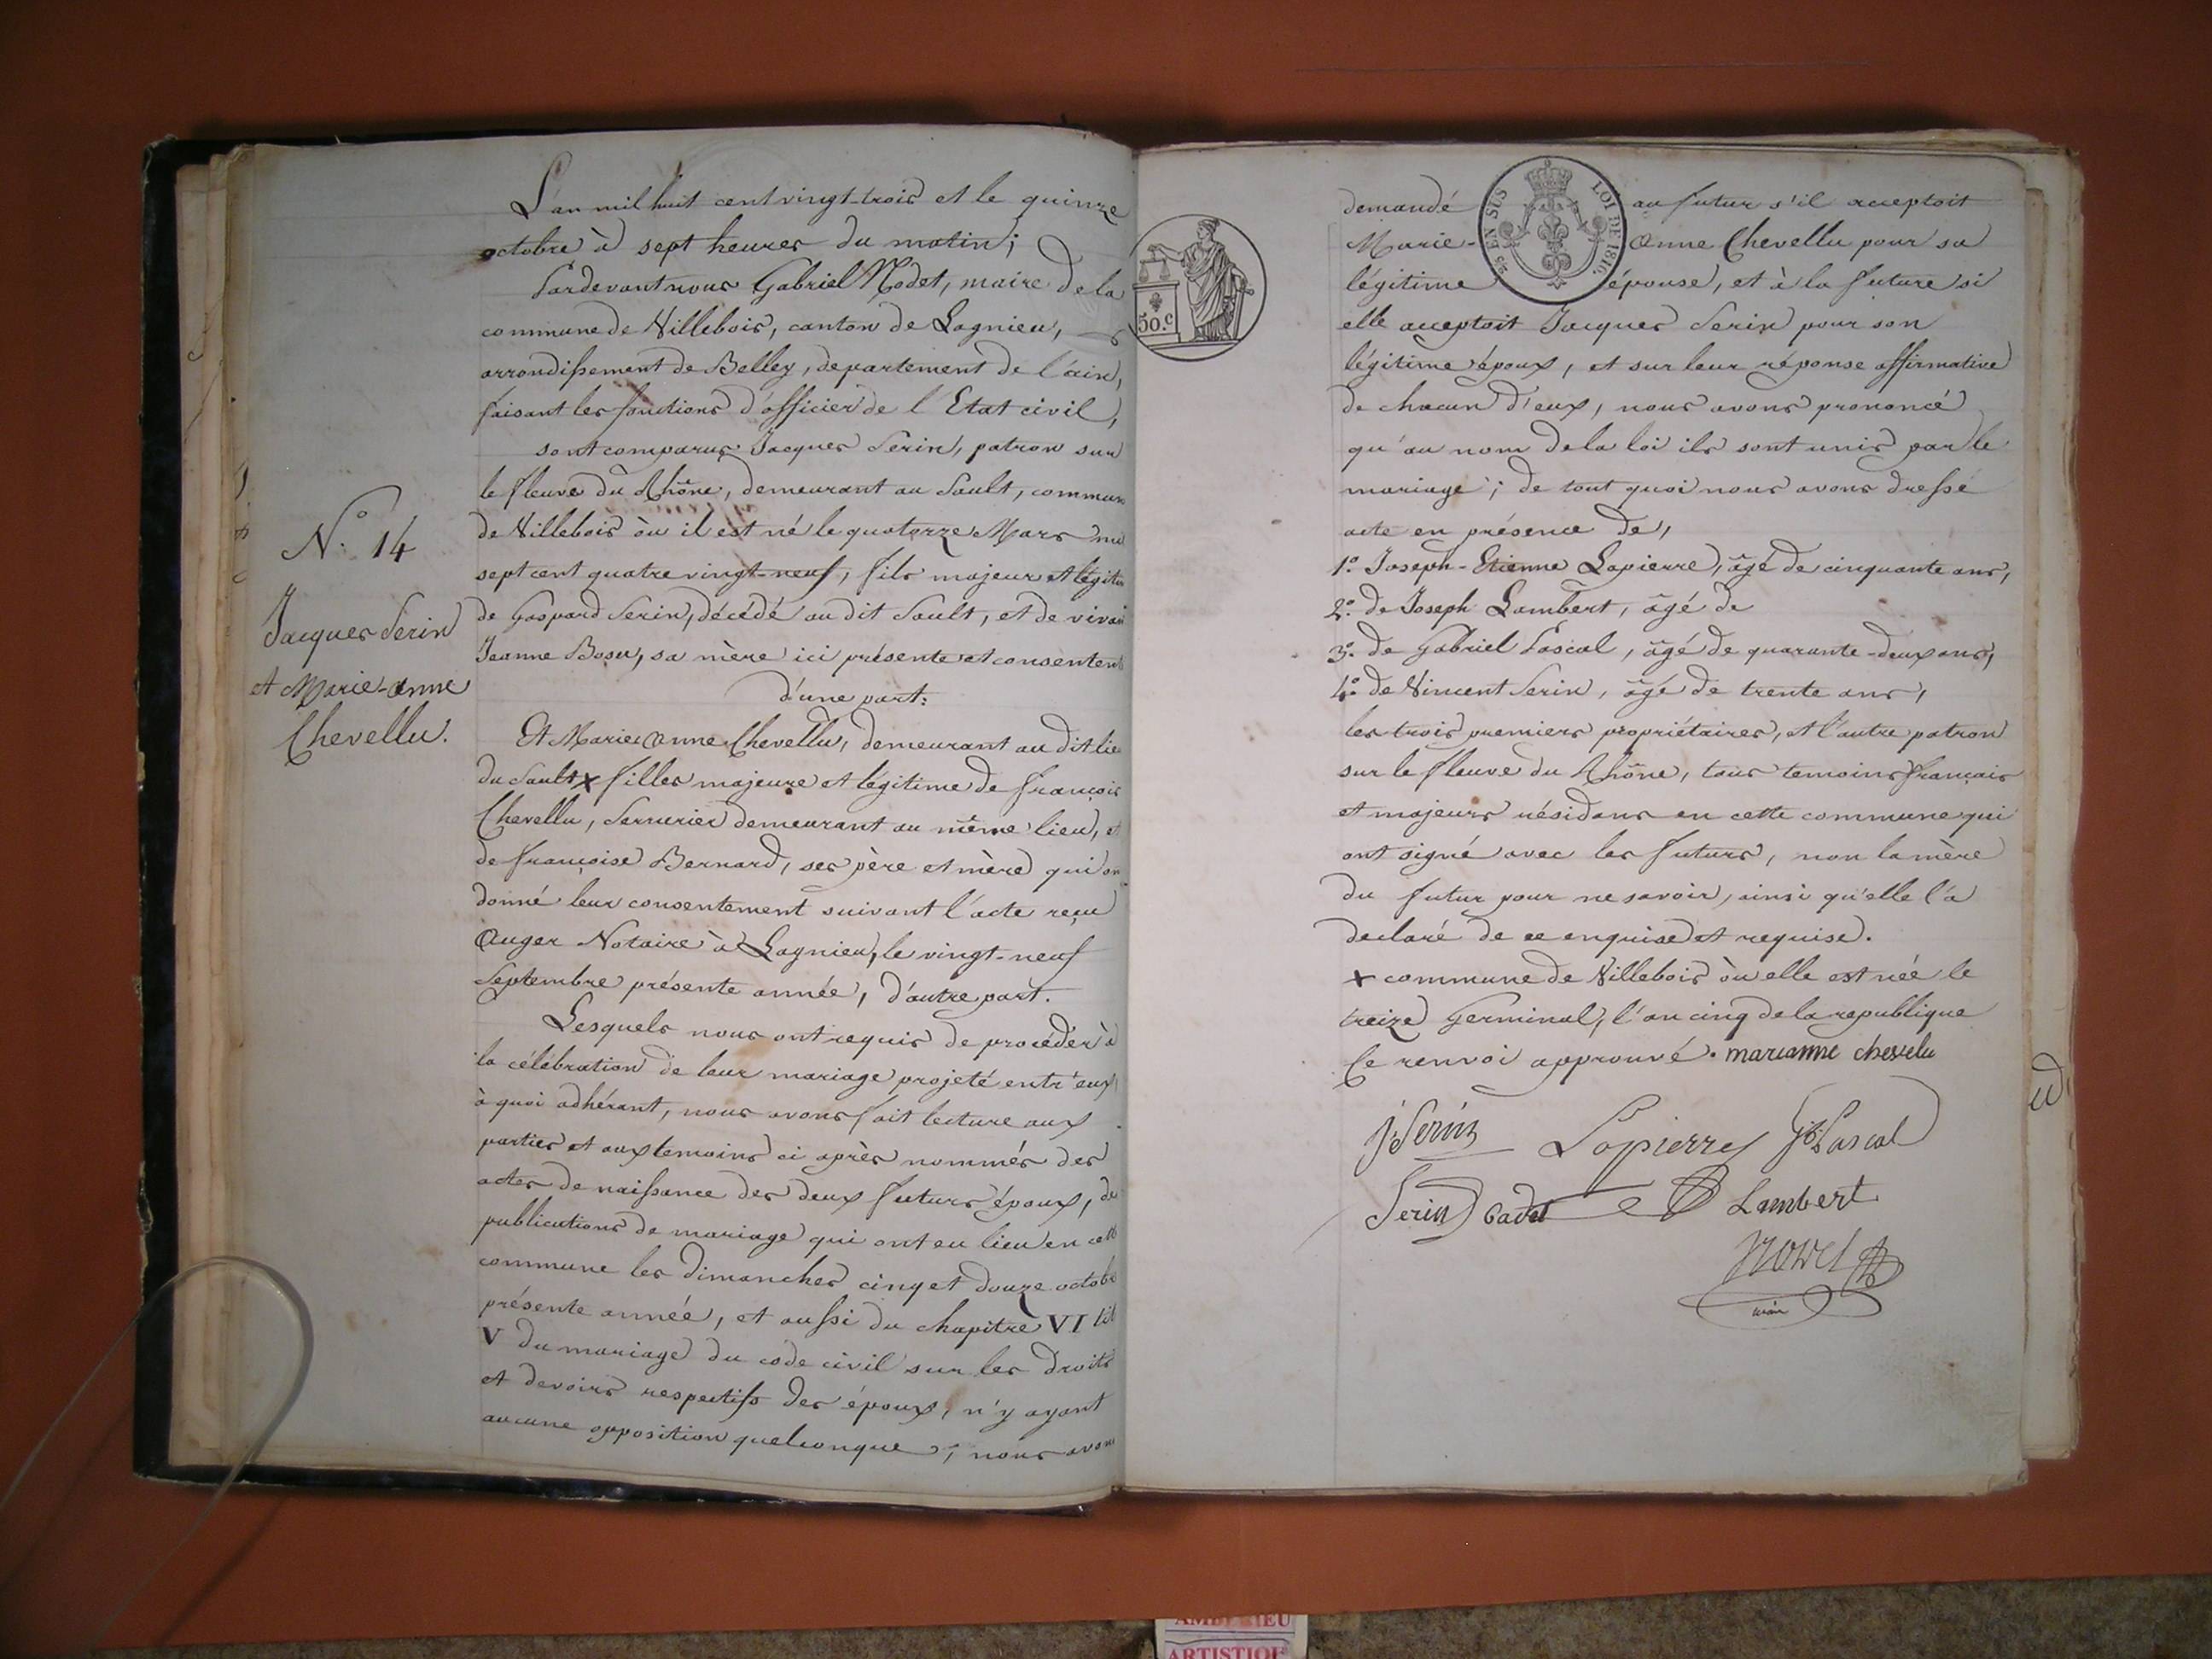 L'an mil huit cent vingt-trois et le quinze
octobre à sept heures du matin;
Pardevant nous Gabriel Nodet, maire de la
commune de Villebois, canton de Lagnieu,
arrondissement de Belley, departement de l'ain,
faisant les fonctions d'officier de l'Etat civil,
sont comparus Jacques Serin, patron sur
le fleuve du Rhône, demeurant au Sault, commune
de Villebois òu il est né le quatorze Mars mil
sept cent quatre vingt-neuf, fils majeur et légitime
N.° 14
Jacques Serin
et Marie-anne
Chevellu.
de Gaspard Serin, décédé au dit Sault, et de vivante
Jeanne Bosu, sa mère ici présente et consentente
d'une part:
Et Marie anne Chevellu, demeurant au dit lieu
du Sault x filles majeure et légitime de françois
Chevellu, Serrurier demeurant au même lieu, et
de françoise Bernard, ses père et mère qui ont
donné leur consentement suivant l'acte reçu
Auger Notaire à Lagnieu, le vingt-neuf
Septembre présente année, d'autre part.
Lesquels nous ont requis de procéder à
la célébration de leur mariage projeté entr'eux,
à quoi adhérant, nous avons fait lecture aux
parties et aux temoins ci après nommés des
actes de naissance des deux futurs époux, des
publications de mariage qui ont eu lieu en cette
commune les dimanches cinq et douze octobre
présente année, et aussi du chapitre VI tit
V du mariage du code civil sur les droits
et devoirs respectifs des époux, n'y ayant
aucune opposition quelconque; nous avons
50.c
EN SUS
LOI DE 1816.
demandé au futur s'il acceptoit
Marie-anne Chevellu pour sa
légitime épouse, et à la future si
elle acceptoit Jacques Serin pour son
légitime époux, et sur leur réponse affirmative
de chacun d'eux, nous avons prononcé
qu'au nom de la loi ils sont unis par le
mariage; de tout quoi nous avons dressé
acte en présence de,
1.° Joseph-Etienne Lapierre, âgé de cinquante ans,
2.° de Joseph Lambert, âgé de
3.° de Gabriel Pascal, âgé de quarante-deux ans,
4.° de Vincent Serin, âgé de trente ans,
les trois premiers propriétaires, et l'autre patron
sur le fleuve du Rhône, tous temoins français
et majeurs résidans en cette commune qui
ont signé avec les futurs, non la mère
du futur pour ne savoir, ainsi qu'elle l'a
declaré de ce enquise et requise.
x commune de Villebois òu elle est née le
treize Germinal, l'an cinq de la republique
Ce renvoi approuvé. marianne chevelu
J. Serin Lapierre Gb. Pascal
Serin Cadet Lambert
Nodet
maire
AMBERIEU
ARTISTIQUE